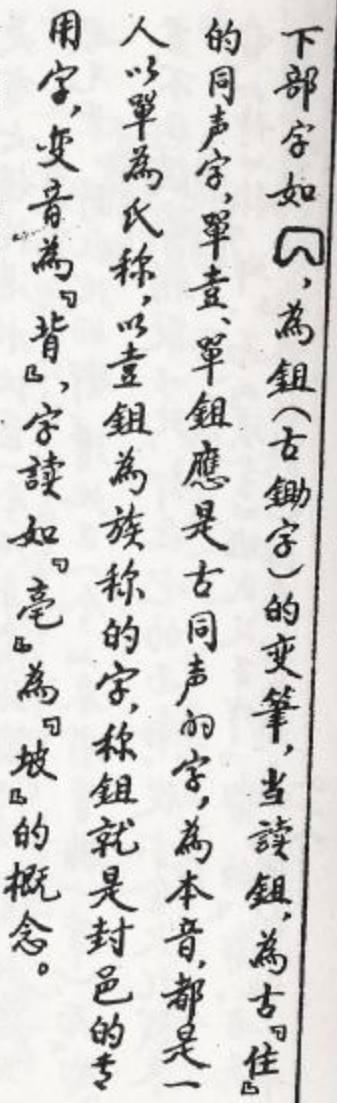 下部字如，為鉏（古鋤字）的变筆，当讀鉏，為古『住』
的同声字，單壴、單鉏應是古同声的字，為本音，都是一
人以單為氏称，以壴鉏為族称的字，称鉏就是封邑的专
用字，变音為『背』，字讀如『亳』為『坡』的概念。